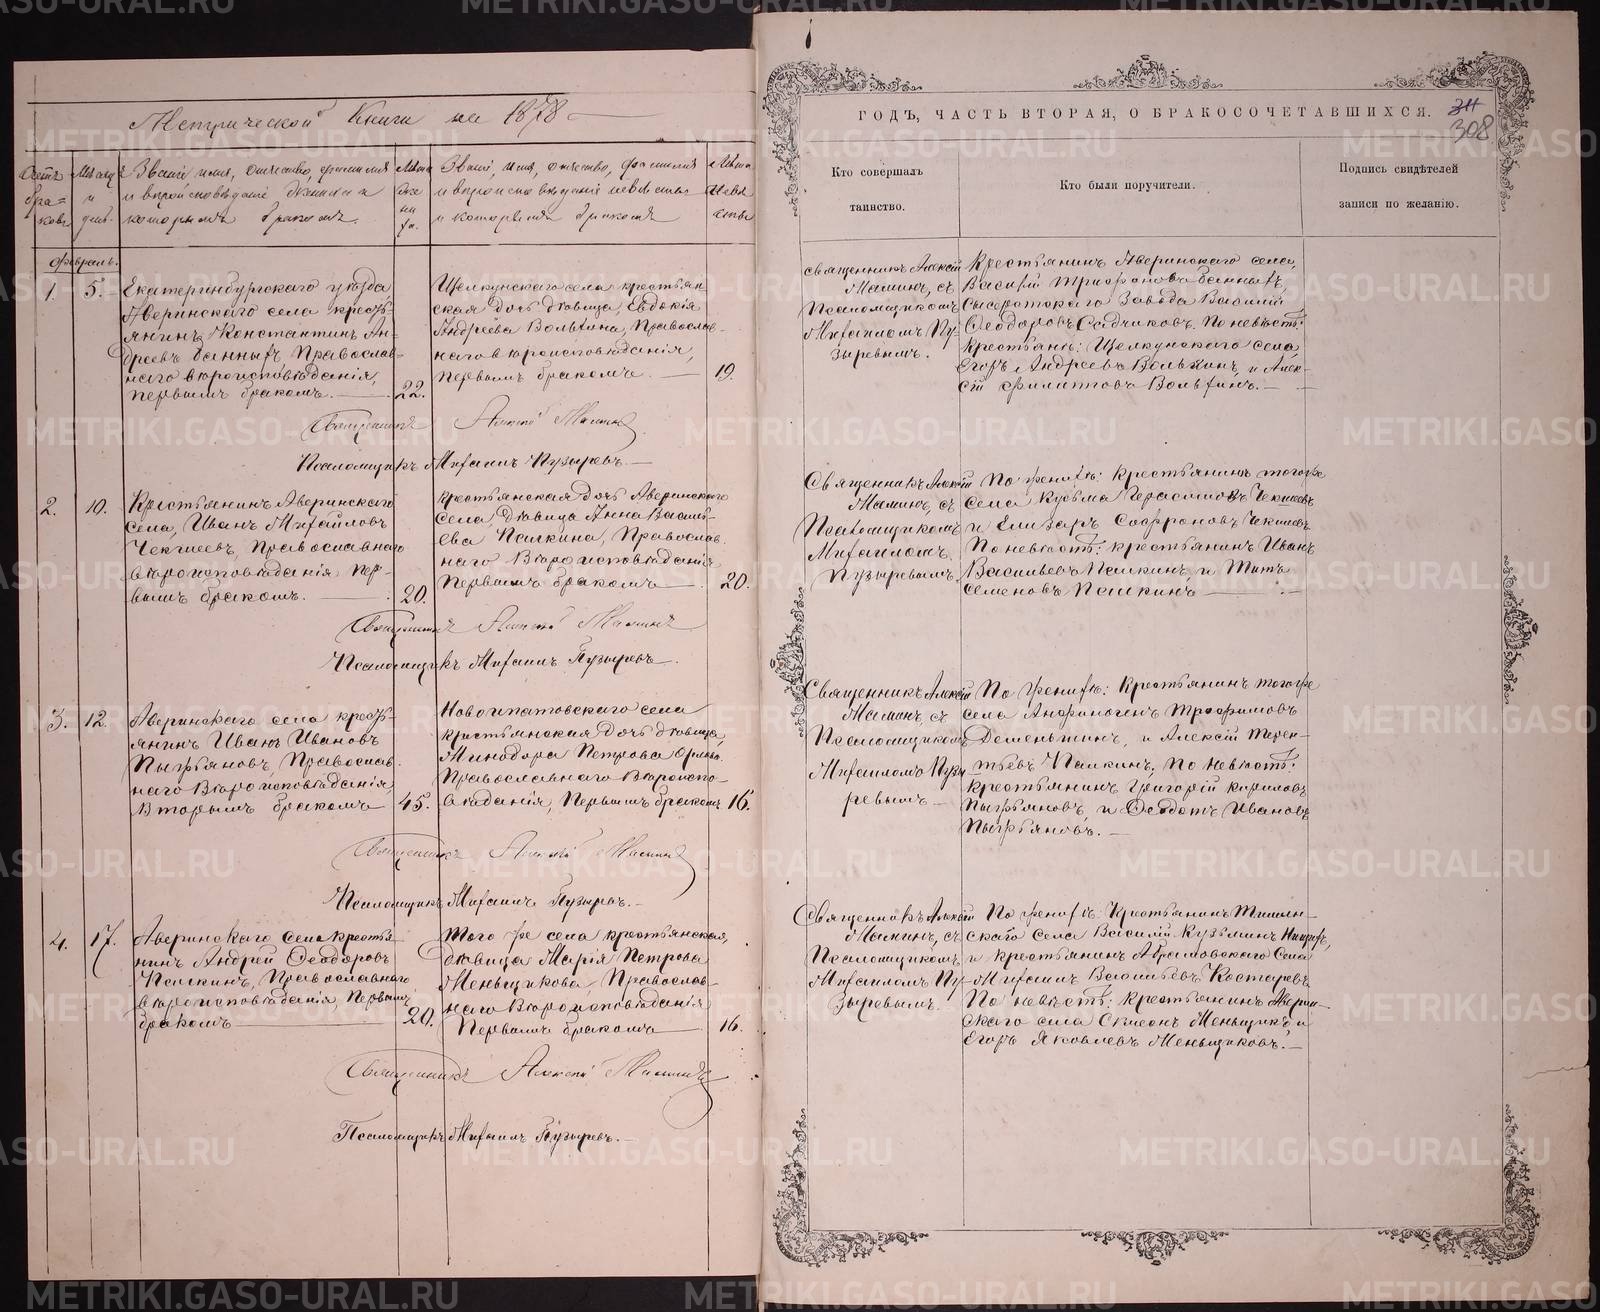 Метрической Книги на 1878
ГОДЪ, ЧАСТЬ ВТОРАЯ, О БРАКОСОЧЕТАВШИХСЯ.
308
Счетъ браковъ
Мѣсяцъ и день.
Званіе, имя, отчество, фамилія
и вѣроисповѣданіе жениха и
которымъ бракомъ.
Лѣта жениха.
Званіе, имя, отчество, фамилія
и вѣроисповѣданіе невѣсты
и которымъ бракомъ
Лѣта невѣсты
Кто совершалъ
таинство.
Кто были поручители.
Подпись свидѣтелей
записи по желанію.
Февраль.
1.
5.
Екатеринбургскаго уѣзда
Аверинскаго села кресть-
янинъ Константинъ Ан-
дреевъ Банныхъ, Православ-
наго вѣроисповѣданія,
первымъ бракомъ.
22.
Щелкунскаго села крестьян-
ская дочь дѣвица, Евдокія
Андреева Вольхина, Православ-
наго вѣроисповѣданія,
первымъ бракомъ.
19.
Священникъ Алексій
Малинъ, съ
Псаломщикомъ
Михаиломъ Пу-
зыревымъ.
Крестьянинъ Аверинскаго села,
Василій Трифоновъ Банныхъ,
Сысертскаго Завода Василій
Ѳеодоровъ Садчиковъ. По невѣстѣ:
крестьяне: Щелкунскаго села,
Егоръ Андреевъ Вольхинъ, и Алек-
сій Филипповъ Вольхинъ.
Священникъ Алексій Малинъ
Псаломщикъ Михаилъ Пузыревъ.
2.
10.
Крестьянинъ Аверинскаго
села, Иванъ Михайловъ
Чекшеевъ, Православнаго
вѣроисповѣданія пер-
вымъ бракомъ.
20.
Крестьянская дочь Аверинскаго
села, дѣвица Анна Василь-
ева Палкина, Православ-
наго Вѣроисповѣданія
Первымъ бракомъ
20.
Священникъ Алексій
Малинъ, съ
Псаломщикомъ
Михаиломъ
Пузыревымъ.
По женихѣ: Крестьянинъ тогоже
села Кузьма Герасимовъ Чекшеевъ
и Елизаръ Софроновъ Чекшеевъ
По невѣстѣ: крестьянинъ Иванъ
Васильевъ Палкинъ, и Титъ
Семеновъ Палкинъ
Священникъ Алексій Малинъ
Псаломщикъ Михаилъ Пузыревъ.
3.
12.
Аверинскаго села кресть-
янинъ Иванъ Ивановъ
Пыжьяновъ, Православ-
наго Вѣроисповѣданія,
Вторымъ бракомъ
45.
Новоипатовскаго села
крестьянская дочь дѣвица,
Минодора Петрова
Православнаго Вѣроиспо-
вѣданія, Первымъ бракомъ
16.
Священникъ Алексій
Малинъ, съ
Псаломщикомъ
Михаиломъ Пузы-
ревымъ
По женихѣ: Крестьянинъ тогоже
села Анфиногенъ Трофимовъ
Деменьшинъ, и Алексій Терен-
тьевъ Палкинъ, По невѣстѣ:
крестьянинъ Григорій Кириловъ
Пыжьяновъ, и Ѳеодотъ Ивановъ
Пыжьяновъ.
Священникъ Алексій Малинъ
Псаломщикъ Михаилъ Пузыревъ.
4.
17.
Аверинскаго села крестья-
нинъ Андрей Ѳеодоровъ
Палкинъ, Православнаго
вѣроисповѣданія, Первымъ
бракомъ
20.
Того же села крестьянская,
дѣвица Марія Петрова
Меньщикова, Православ-
наго Вѣроисповѣданія
Первымъ бракомъ
16.
Священникъ Алексій
Малинъ, съ
Псаломщикомъ
Михаиломъ Пу-
зыревымъ.
По женихѣ Крестьянинъ
скаго села Василій Кузьминъ
и крестьянинъ Абрамовскаго села
Михаилъ Васильевъ Костаревъ
По невѣстѣ: крестьянинъ Аверин-
скаго села Симеонъ Меньщиковъ и
Егоръ Яковлевъ Меньщиковъ.
Священникъ Алексій Малинъ
Псаломщикъ Михаилъ Пузыревъ.
METRIKI.GASO-URAL.RU